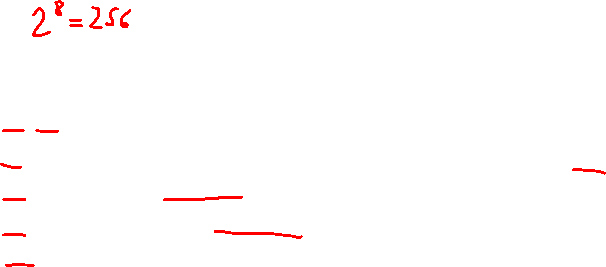 2⁸=256